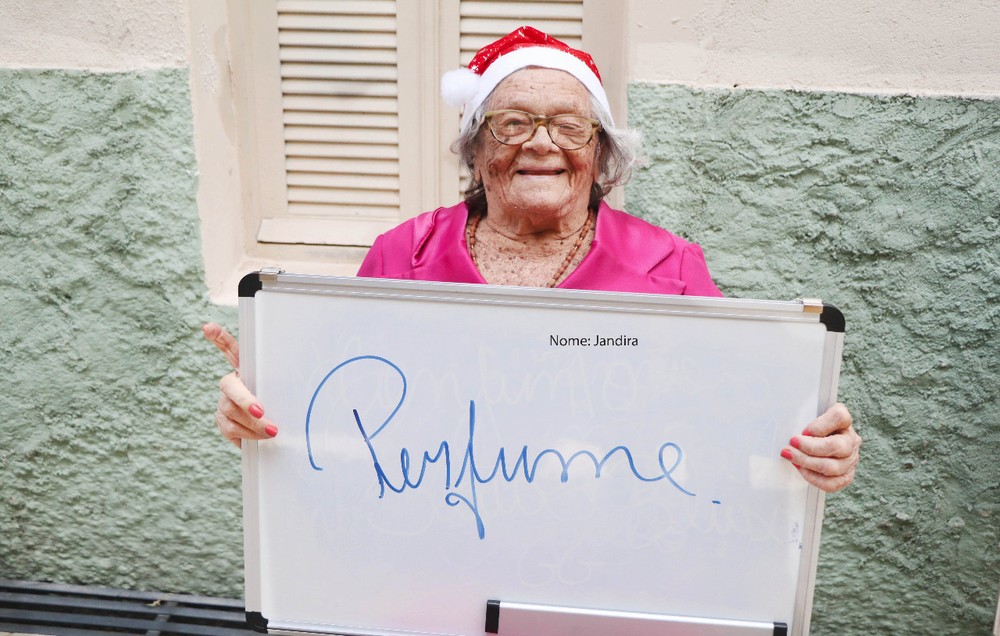 Nome: Jandira
Perfume.